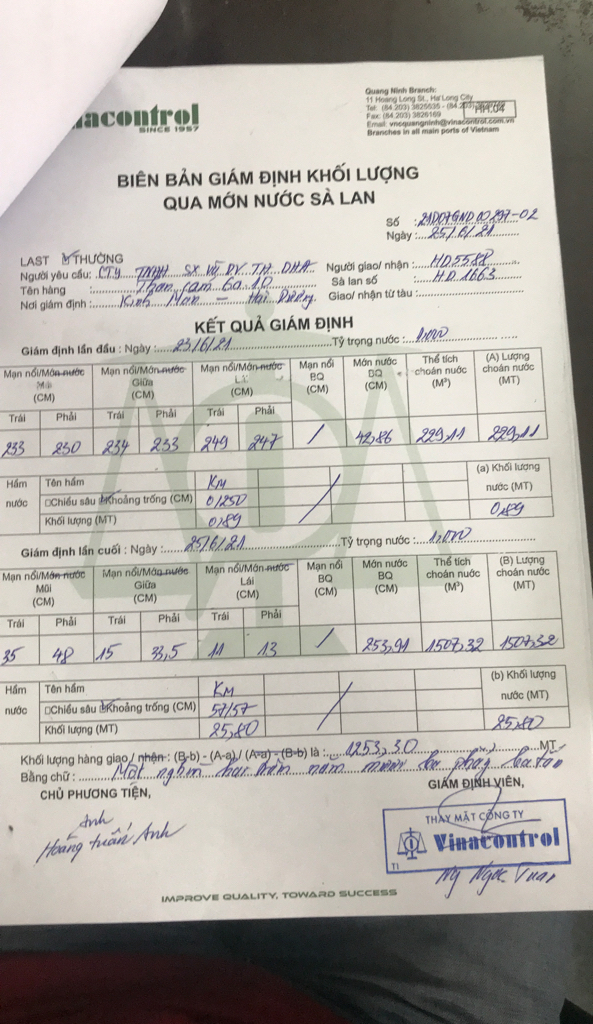 nacontrol
SINCE 1957
Quang Ninh Branch:
11 Hoang Long St., Ha Long City
Tel: (84.203) 3825635 - (84.203)
Fax: (84.203) 3826169
Email: vncquangninh@vinacontrol.com.vn
Branches in all main ports of Vietnam
HH.04
BIÊN BẢN GIÁM ĐỊNH KHỐI LƯỢNG
QUA MỚN NƯỚC SÀ LAN
Số : 21D07GND00897-02
Ngày : 25/6/21
LAST THƯỜNG
Người yêu cầu: CTY TNHH SX VÀ DV TH DHA Người giao/ nhận : HD5588
Tên hàng : Than cám 6a.10 Sà lan số : HD1663
Nơi giám định : Kinh Môn - Hải Dương Giao/ nhận từ tàu :
KẾT QUẢ GIÁM ĐỊNH
Giám định lần đầu : Ngày : 23/6/21 Tỷ trọng nước : 1,000
Mạn nổi/Mớn nước Mũi (CM) Mạn nổi/Mớn nước Giữa (CM) Mạn nổi/Mớn nước Lái (CM) Mạn nổi BQ (CM) Mớn nước BQ (CM) Thể tích choán nước (M³) (A) Lượng choán nước (MT)
Trái Phải Trái Phải Trái Phải
233 230 234 233 249 247 / 42,86 229,11 229,11
Hầm nước Tên hầm KM (a) Khối lượng nước (MT)
Chiều sâu Khoảng trống (CM) 0/250
Khối lượng (MT) 0,89 / 0,89
Giám định lần cuối : Ngày : 25/6/21 Tỷ trọng nước : 1,000
Mạn nổi/Mớn nước Mũi (CM) Mạn nổi/Mớn nước Giữa (CM) Mạn nổi/Mớn nước Lái (CM) Mạn nổi BQ (CM) Mớn nước BQ (CM) Thể tích choán nước (M³) (B) Lượng choán nước (MT)
Trái Phải Trái Phải Trái Phải
35 48 15 33,5 11 13 / 253,91 1507,32 1507,32
Hầm nước Tên hầm KM (b) Khối lượng nước (MT)
Chiều sâu Khoảng trống (CM) 57/57
Khối lượng (MT) 25,80 / 25,80
Khối lượng hàng giao/ nhận : (B-b) - (A-a) / (A-a) - (B-b) là : 1253,30 MT
Bằng chữ : Một nghìn hai trăm năm mươi ba phẩy ba tấn
CHỦ PHƯƠNG TIỆN, GIÁM ĐỊNH VIÊN,
Anh
Hoàng Tuấn Anh
THAY MẶT CÔNG TY
Vinacontrol
TI
Ng Ngọc Tuan
IMPROVE QUALITY, TOWARD SUCCESS